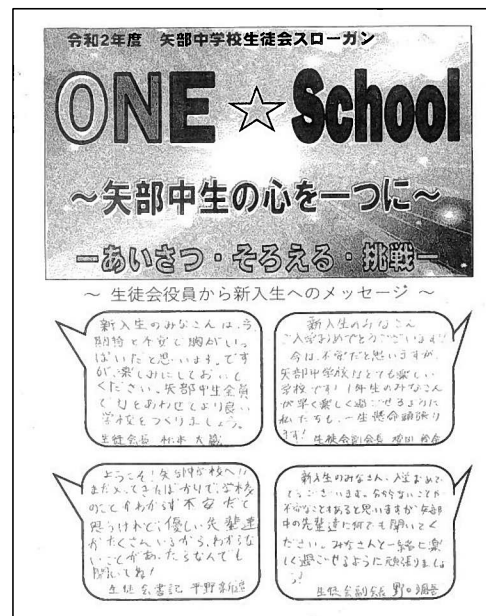 令和2年度 矢部中学校生徒会スローガン
ONE ☆ School
~矢部中生の心を一つに~
ーあいさつ・そろえる・挑戦ー
~ 生徒会役員から新入生へのメッセージ ~
新入生のみなさんは、今、
期待と不安で胸がいっ
ぱいだと思います。ですが、
楽しみにしておいて
ください。矢部中生全員
で心をあわせてより良い
学校をつくりましょう。
生徒会長
新入生のみなさん
ご入学おめでとうございます!
今は、不安だと思いますが、
矢部中学校はとても楽しい
学校です!1年生のみなさん
が早く楽しく過ごせるように
私たちも、一生懸命頑張り
ます! 生徒会副会長
ようこそ!矢部中学校へ!!
まだ入ってきたばかりで、学校
のことがわからず不安だと
思うけれど、優しい先輩達
がたくさんいるから、わからな
いことがあったらなんでも
聞いてね!
生徒会書記 平野
新入生のみなさん、入学おめで
とうございます。分からないことや
不安なこともあると思いますが矢部
中の先輩達に何でも聞いてく
ださい。みなさんと一緒に楽
しく過ごせるように頑張りましょ
う!
生徒会副会長 野口